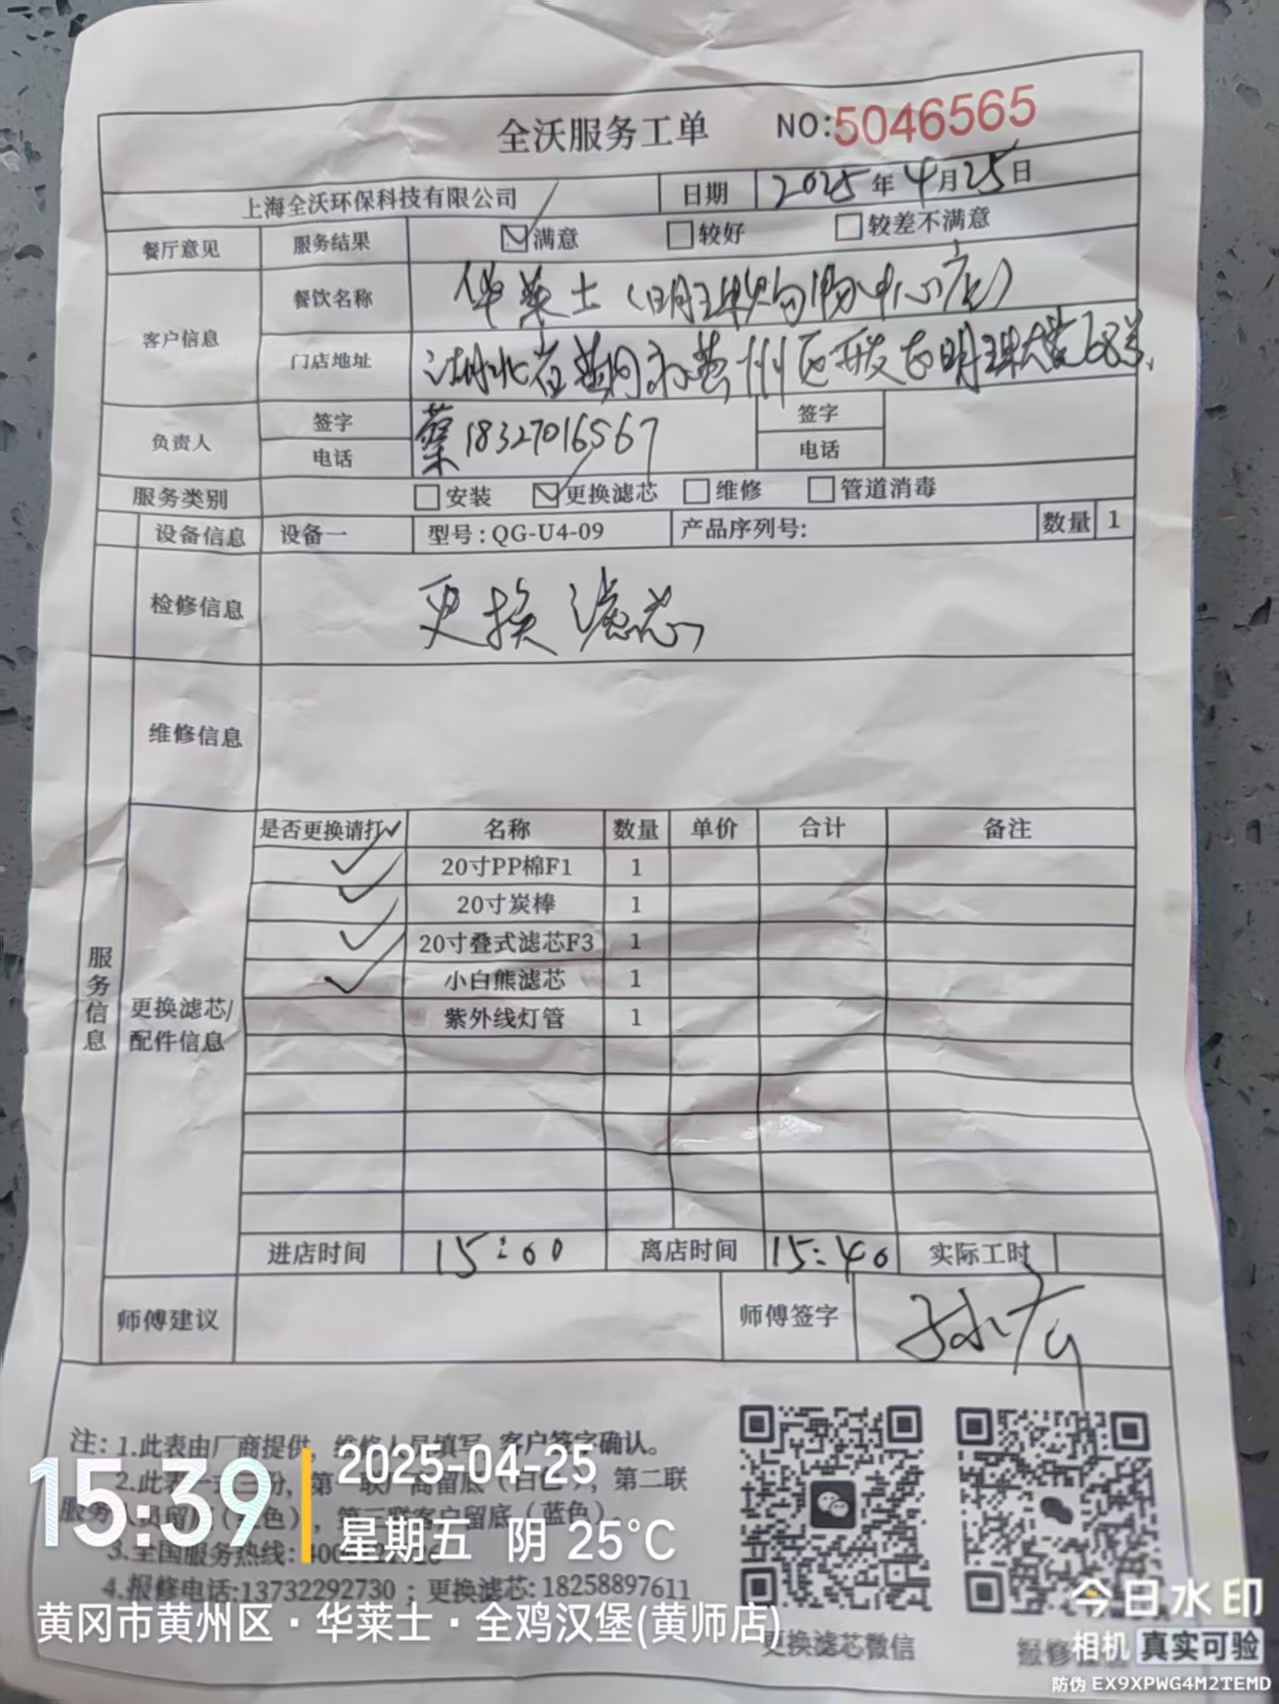 全沃服务工单 NO:5046565
上海全沃环保科技有限公司 日期 2025年4月25日
餐厅意见 服务结果 满意 较好 较差不满意
客户信息 餐饮名称 华莱士(明珠购物中心店)
门店地址 湖北省黄冈市黄州区开发区明珠大道68号
负责人 签字 蔡 18327016567 签字
电话 电话
服务类别 安装 更换滤芯 维修 管道消毒
设备信息 设备一 型号:QG-U4-09 产品序列号: 数量 1
检修信息 更换滤芯
维修信息
服务信息
更换滤芯/
配件信息
是否更换请打✓ 名称 数量 单价 合计 备注
✓ 20寸PP棉F1 1
✓ 20寸炭棒 1
✓ 20寸叠式滤芯F3 1
✓ 小白熊滤芯 1
紫外线灯管 1
进店时间 15:00 离店时间 15:40 实际工时
师傅建议 师傅签字
注:1.此表由厂商提供,维修人员填写,客户签字确认。
2.此表一式三份,第一联厂商留底(白色),第二联
服务人员留底(红色),第三联客户留底(蓝色)。
3.全国服务热线:
4.报修电话:13732292730;更换滤芯:18258897611
更换滤芯微信
15:39
2025-04-25
星期五 阴 25°C
黄冈市黄州区·华莱士·全鸡汉堡(黄师店)
今日水印
相机 真实可验
防伪 EX9XPWG4M2TEMD